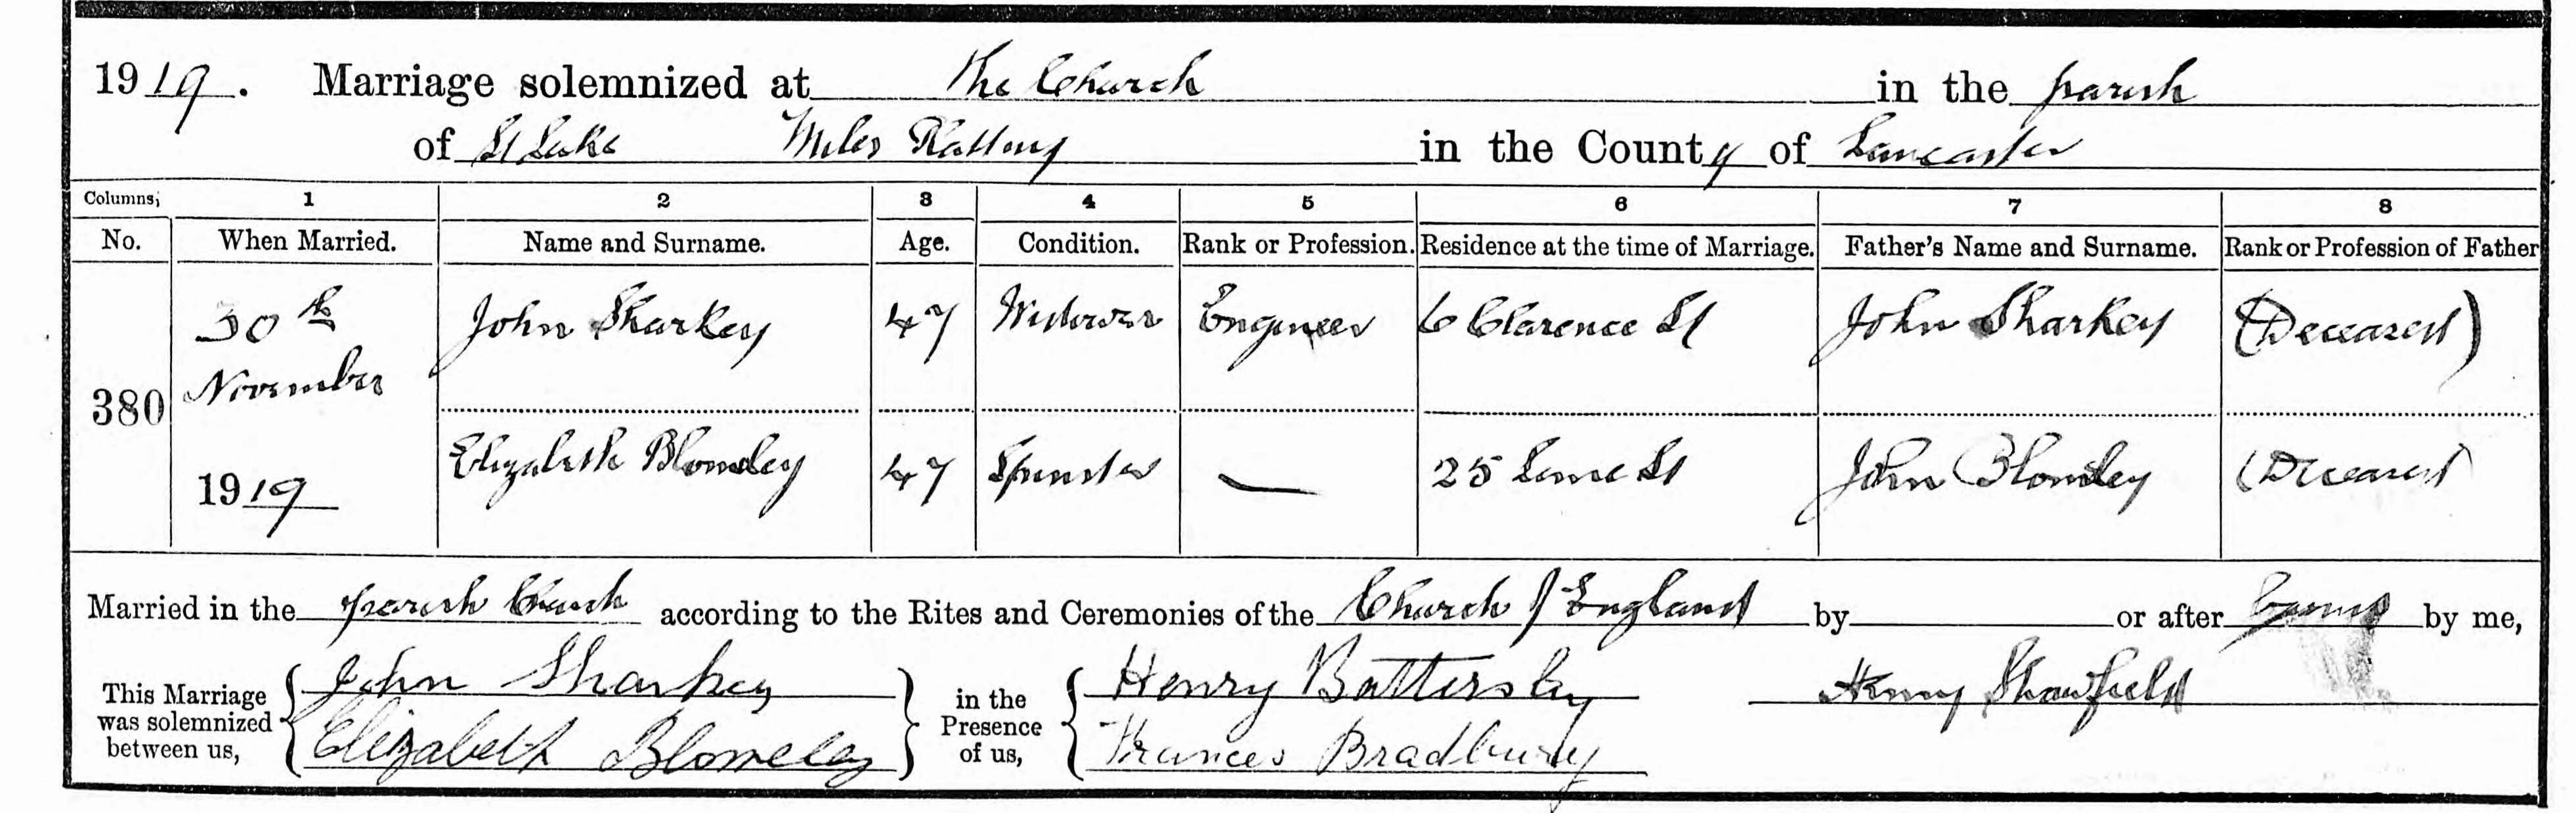 1919. Marriage solemnized at The Church in the parish
of St Luke Miles Platting in the County of Lancaster
Columns; 1 2 3 4 5 6 7 8
No. When Married. Name and Surname. Age. Condition. Rank or Profession. Residence at the time of Marriage. Father's Name and Surname. Rank or Profession of Father
380 30th November 1919 John Sharkey 47 Widower Engineer 6 Clarence St John Sharkey (Deceased)
Elizabeth Blomeley 47 Spinster — 25 Lime St John Blomeley (Deceased
Married in the parish Church according to the Rites and Ceremonies of the Church of England by or after banns by me,
This Marriage was solemnized between us, { John Sharkey } in the Presence of us, { Henry Battersby Henry Shawfield
Elizabeth Blomeley Frances Bradbury